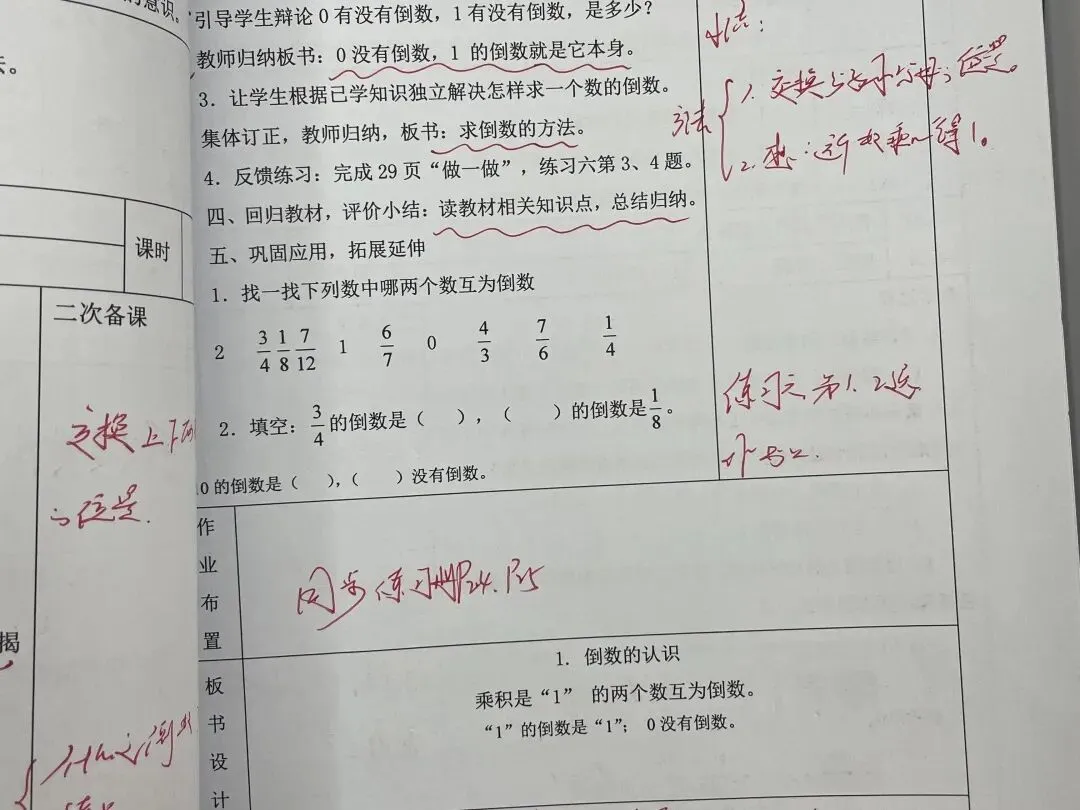 的意识。
去。
课时
二次备课
交换上下面
的位置.
揭
引导学生辩论 0 有没有倒数，1 有没有倒数，是多少？
教师归纳板书：0 没有倒数，1 的倒数就是它本身。
3．让学生根据已学知识独立解决怎样求一个数的倒数。
集体订正，教师归纳，板书：求倒数的方法。
4．反馈练习：完成 29 页“做一做”，练习六第 3、4 题。
四、回归教材，评价小结：读教材相关知识点，总结归纳。
五、巩固应用，拓展延伸
1．找一找下列数中哪两个数互为倒数
2 3/4 1/8 7/12 1 6/7 0 4/3 7/6 1/4
2．填空：3/4 的倒数是（ ），（ ）的倒数是 1/8 。
10 的倒数是（ ），（ ）没有倒数。
方法
1. 交换分子分母位置。
2. 想：这个数乘几得1。
练习六第1. 2题
作业布置
同步练习册P24. P25
板书设计
1. 倒数的认识
乘积是“1” 的两个数互为倒数。
“1”的倒数是“1”； 0没有倒数。